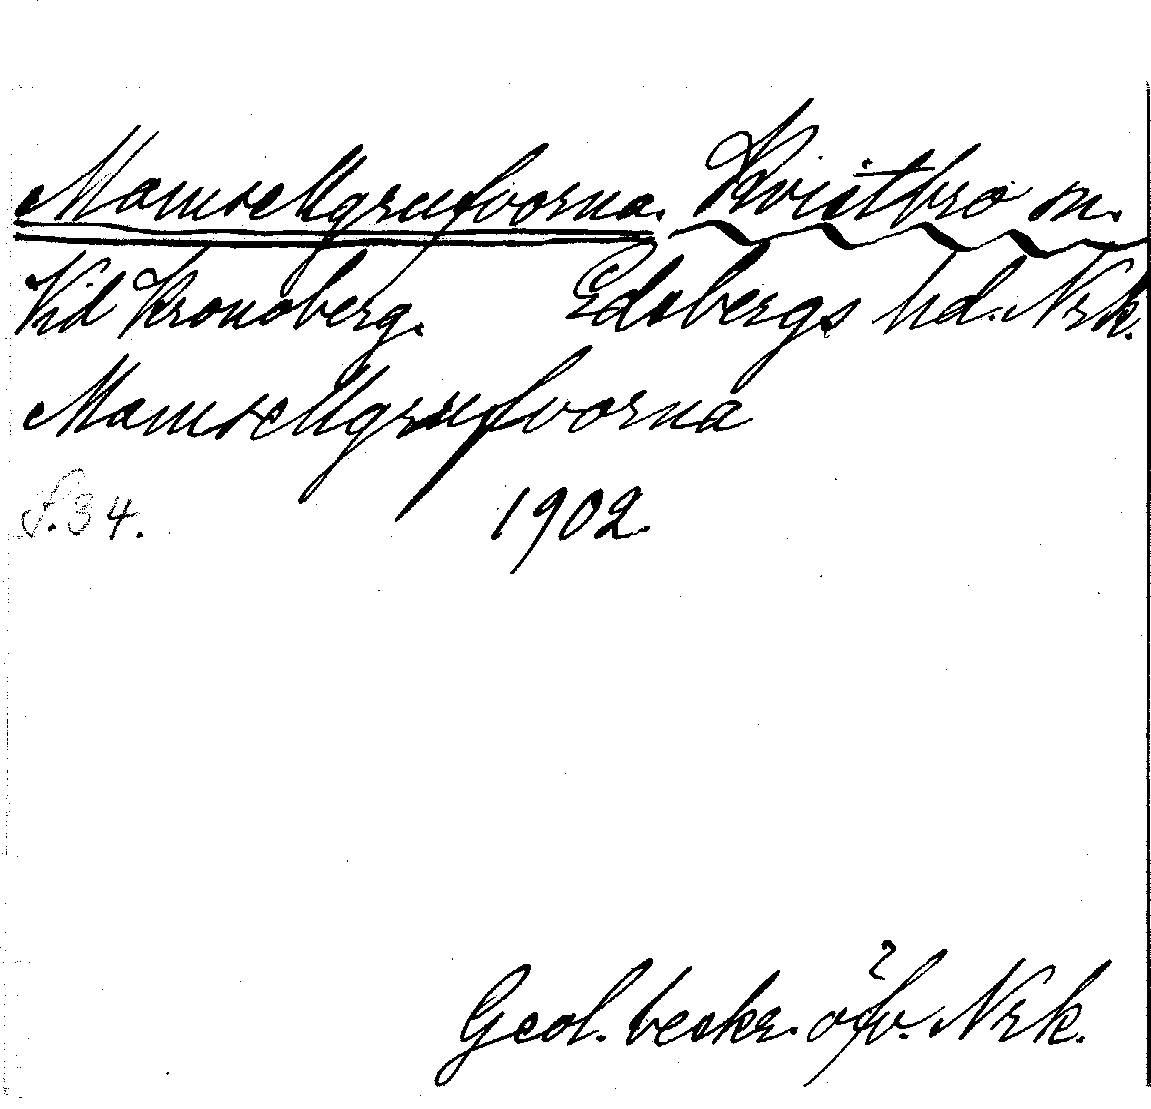 Mamsellgrufvorna. Kvistbro sn.
Vid Kronoberg. Edsbergs hd. Nrk.
Mamsellgrufvorna
S. 34. 1902
Geol. beskr. öfv. Nrk.